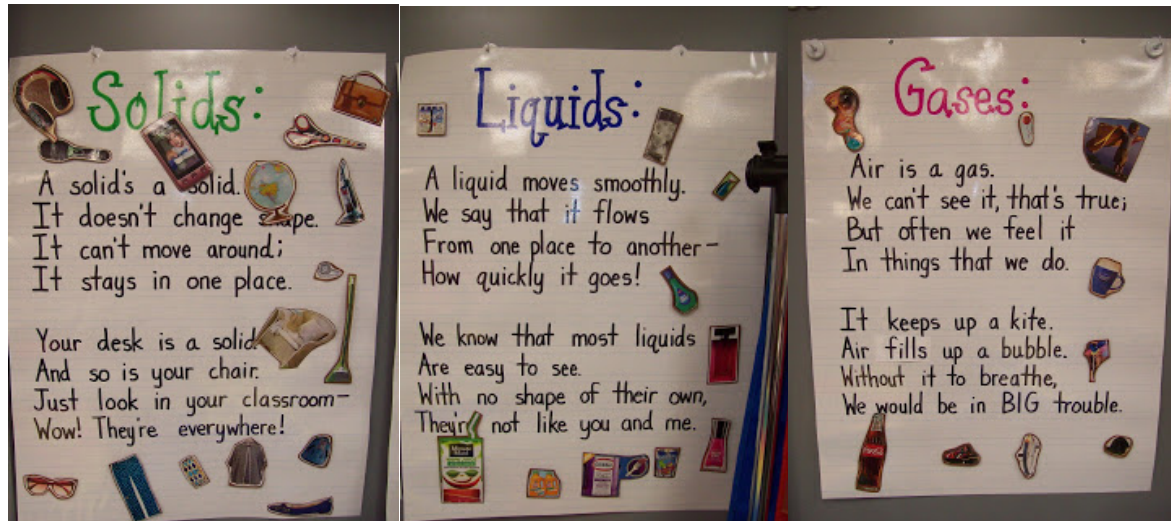 Solids:
A solid's a solid.
It doesn't change shape.
It can't move around;
It stays in one place.
Your desk is a solid
And so is your chair.
Just look in your classroom—
Wow! They're everywhere!
Liquids:
A liquid moves smoothly.
We say that it flows
From one place to another—
How quickly it goes!
We know that most liquids
Are easy to see.
With no shape of their own,
They're not like you and me.
Minute Maid
Gases:
Air is a gas.
We can't see it, that's true;
But often we feel it
In things that we do.
It keeps up a kite.
Air fills up a bubble.
Without it to breathe,
We would be in BIG trouble.
Coca-Cola